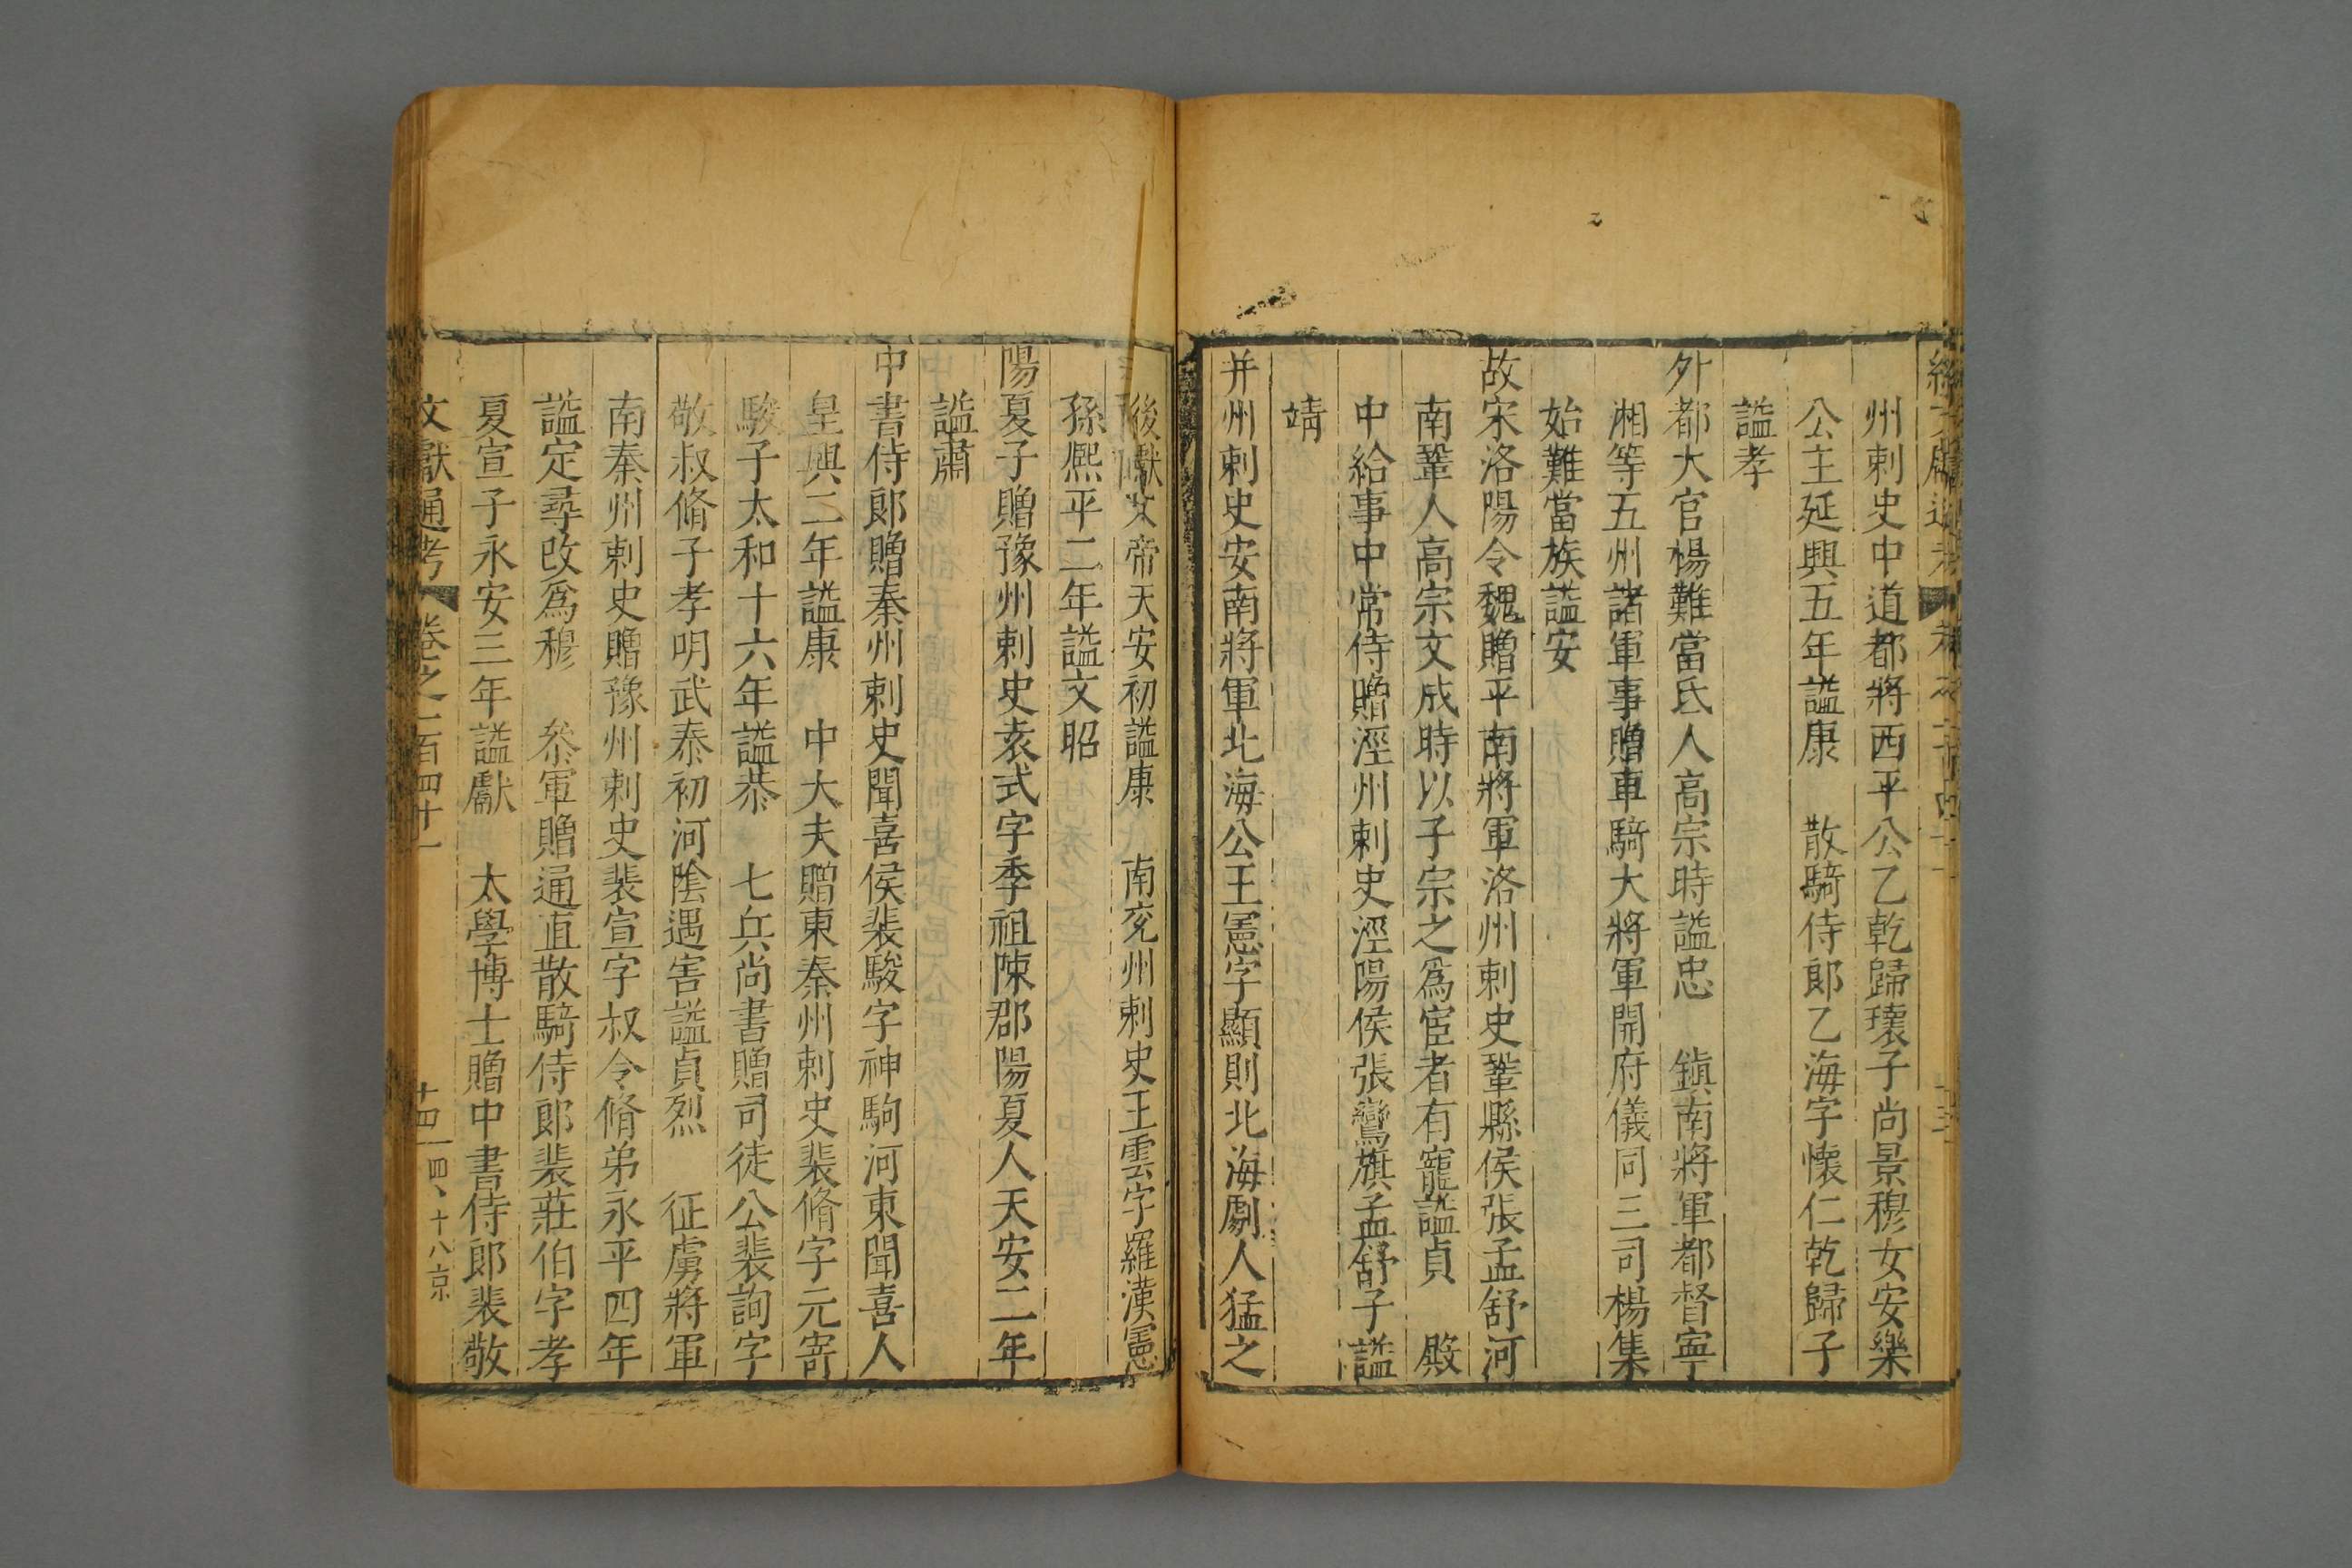 州刺史中道都將西平公乙乾歸瓌子尚景穆女安樂
公主延興五年謚康　散騎侍郎乙海字懷仁乾歸子
謚孝
外都大官楊難當氐人高宗時謚忠　鎮南將軍都督寧
湘等五州諸軍事贈車騎大將軍開府儀同三司楊集
始難當族謚安
故宋洛陽令魏贈平南將軍洛州刺史鞏縣侯張孟舒河
南鞏人高宗文成時以子宗之爲宦者有寵謚貞　殿
中給事中常侍贈涇州刺史涇陽侯張鸞旗孟舒子謚
靖
并州刺史安南將軍北海公王憲字顯則北海劇人猛之
後獻文帝天安初謚康　南兗州刺史王雲字羅漢憲
孫熈平二年謚文昭
陽夏子贈豫州刺史袁式字季祖陳郡陽夏人天安二年
謚肅
中書侍郎贈秦州刺史聞喜侯裴駿字神駒河東聞喜人
皇興二年謚康　中大夫贈東秦州刺史裴脩字元寄
駿子太和十六年謚恭　七兵尚書贈司徒公裴詢字
敬叔脩子孝明武泰初河陰遇害謚貞烈　征虜將軍
南秦州刺史贈豫州刺史裴宣字叔令脩弟永平四年
謚定尋改爲穆　叅軍贈通直散騎侍郎裴莊伯字孝
夏宣子永安三年謚獻　太學博士贈中書侍郎裴敬
文獻通考　卷之一百四十一　十四　一四、十八京